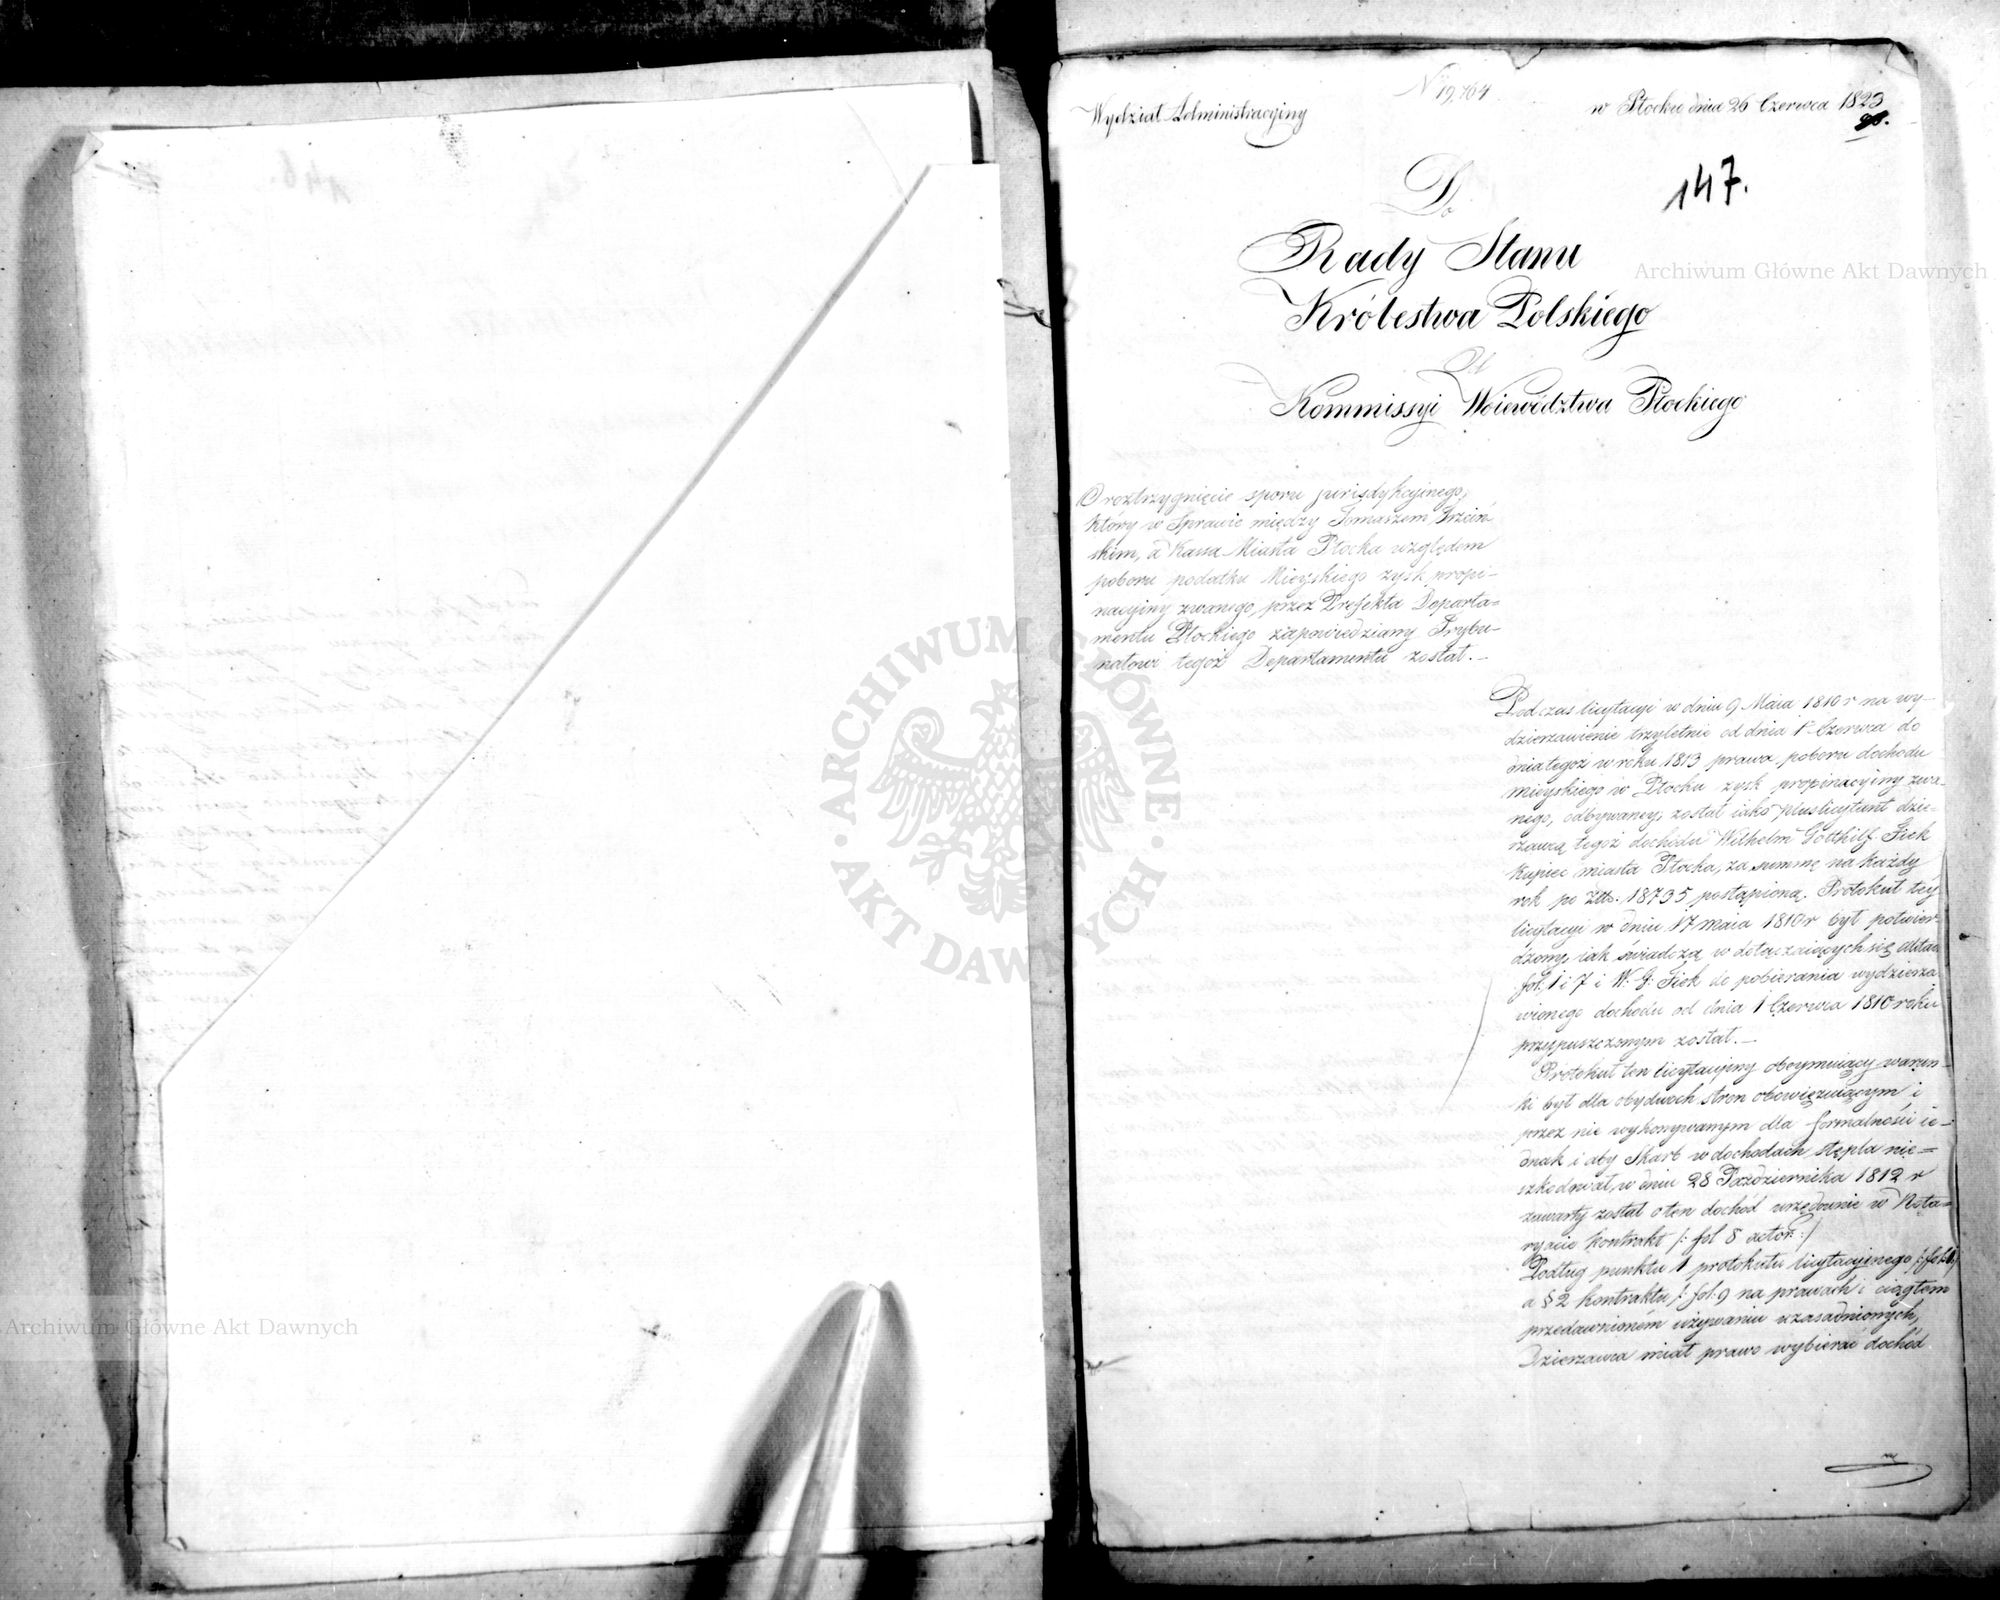 Wydział Administracyiny
N 19,764
w Płocku dnia 26 Czerwca 1823
147.
Do
Rady Stanu
Królestwa Polskiego
Od
Kommissyi Woiewództwa Płockiego
O roztrzygnięcie sporu jurisdykcyinego,
który w Sprawie między Tomaszem Trzciń-
skim, a Kassą Miasta Płocka względem
poboru podatku Mieyskiego zysk propi-
nacyiny zwanego, przez Prefekta Departa-
mentu Płockiego zapowiedziany Trybu-
nałowi tegoż Departamentu został.-
Podczas licytacyi w dniu 9 Maia 1810 r na wy-
dzierzawienie trzyletnie od dnia 1 Czerwca do
dnia tegoż w roku 1813 prawa poboru dochodu
mieyskiego w Płocku zysk propinacyiny zwa-
nego, odbywaney, został iako pluslicytant dzie-
rzawcą tegoż dochodu Wilhelm Gotthilf Fiek
Kupiec miasta Płocka, za summę na każdy
rok po Złł. 18735 postąpioną. Protokuł tey
licytacyi w dniu 17 maia 1810 r był potwier-
dzony, iak świadczą w dołączaiących się aktach
fol: 1 i 7 i W: G: Fiek do pobierania wydzierża
wionego dochodu od dnia 1 Czerwca 1810 roku
przypuszczonym został.-
Protokuł ten licytacyiny obeymuiący warun-
ki był dla obydwóch stron obowięzuiącym i
przez nie wykonywanym dla formalności ie-
dnak i aby Skarb w dochodach stępla nie-
szkodował, w dniu 28 Października 1812 r
zawarty został o ten dochód urzędownie w Nota-
ryacie kontrakt /: fol 8 actor: /
Podług punktu 1 protokułu licytacyinego /: fol: 1 /
a § 2 kontraktu /: fol: 9 na prawach i ciągłem
przedawnionem używaniu uzasadnionych,
Dzierzawca miał prawo wybierać dochód
Archiwum Główne Akt Dawnych
ARCHIWUM GŁÓWNE AKT DAWNYCH
Archiwum Główne Akt Dawnych